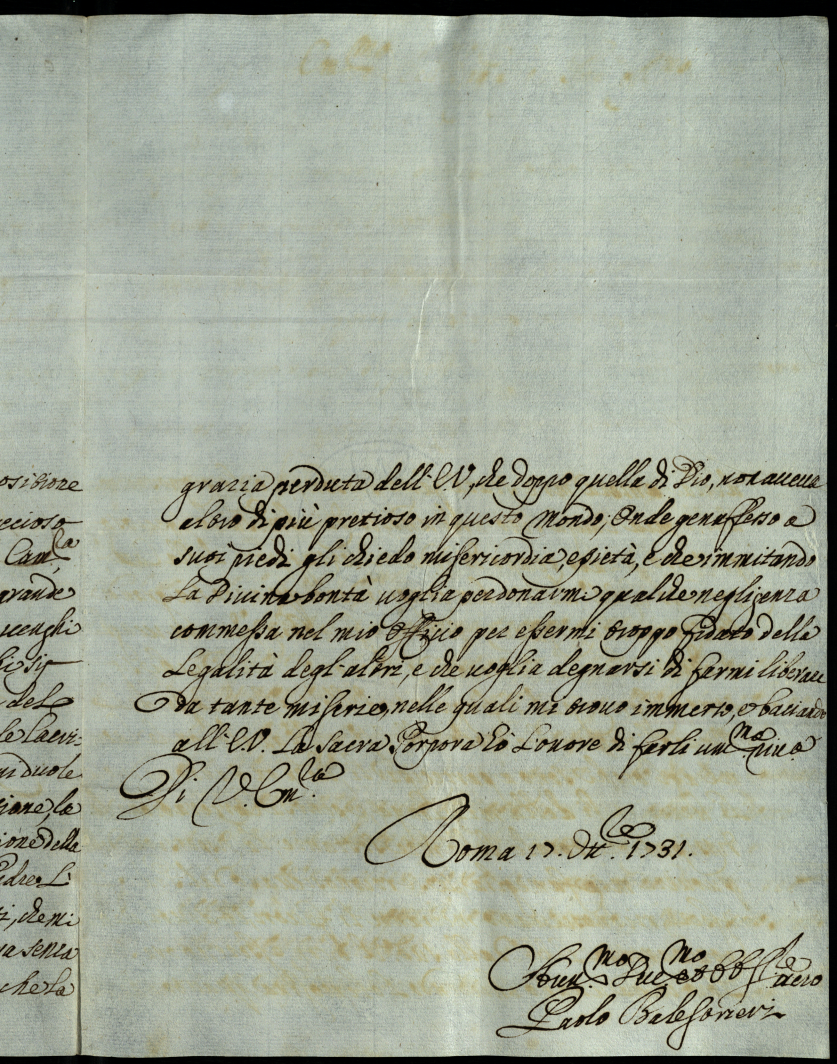 osizione
ecioso
Cam.ra
grande
scenghi
li sig.ri
del
le Laevi-
duole
sione, la
ione della
adre L.
ti, che mi
a senza
che la
grazia perduta dell'E.V., che doppo quella di Dio, non aveva
altro di più pretioso in questo Mondo; Onde genuflesso a
suoi piedi gli chiedo misericordia, e pietà, e che immitando
La Divina bontà voglia perdonarmi qualche negligenza
commessa nel mio Officio per essermi troppo fidato della
Legalità degl'altri, e che voglia degnarsi di farmi liberare
da tante miserie, nelle quali mi trovo immerso, e baciando
all'E.V. La Sacra Porpora hò l'onore di farli um.ma riv.a
Di V. Em.za
Roma 17. Ott.re 1731.
Hum.mo Dev.mo et obb.
Paolo